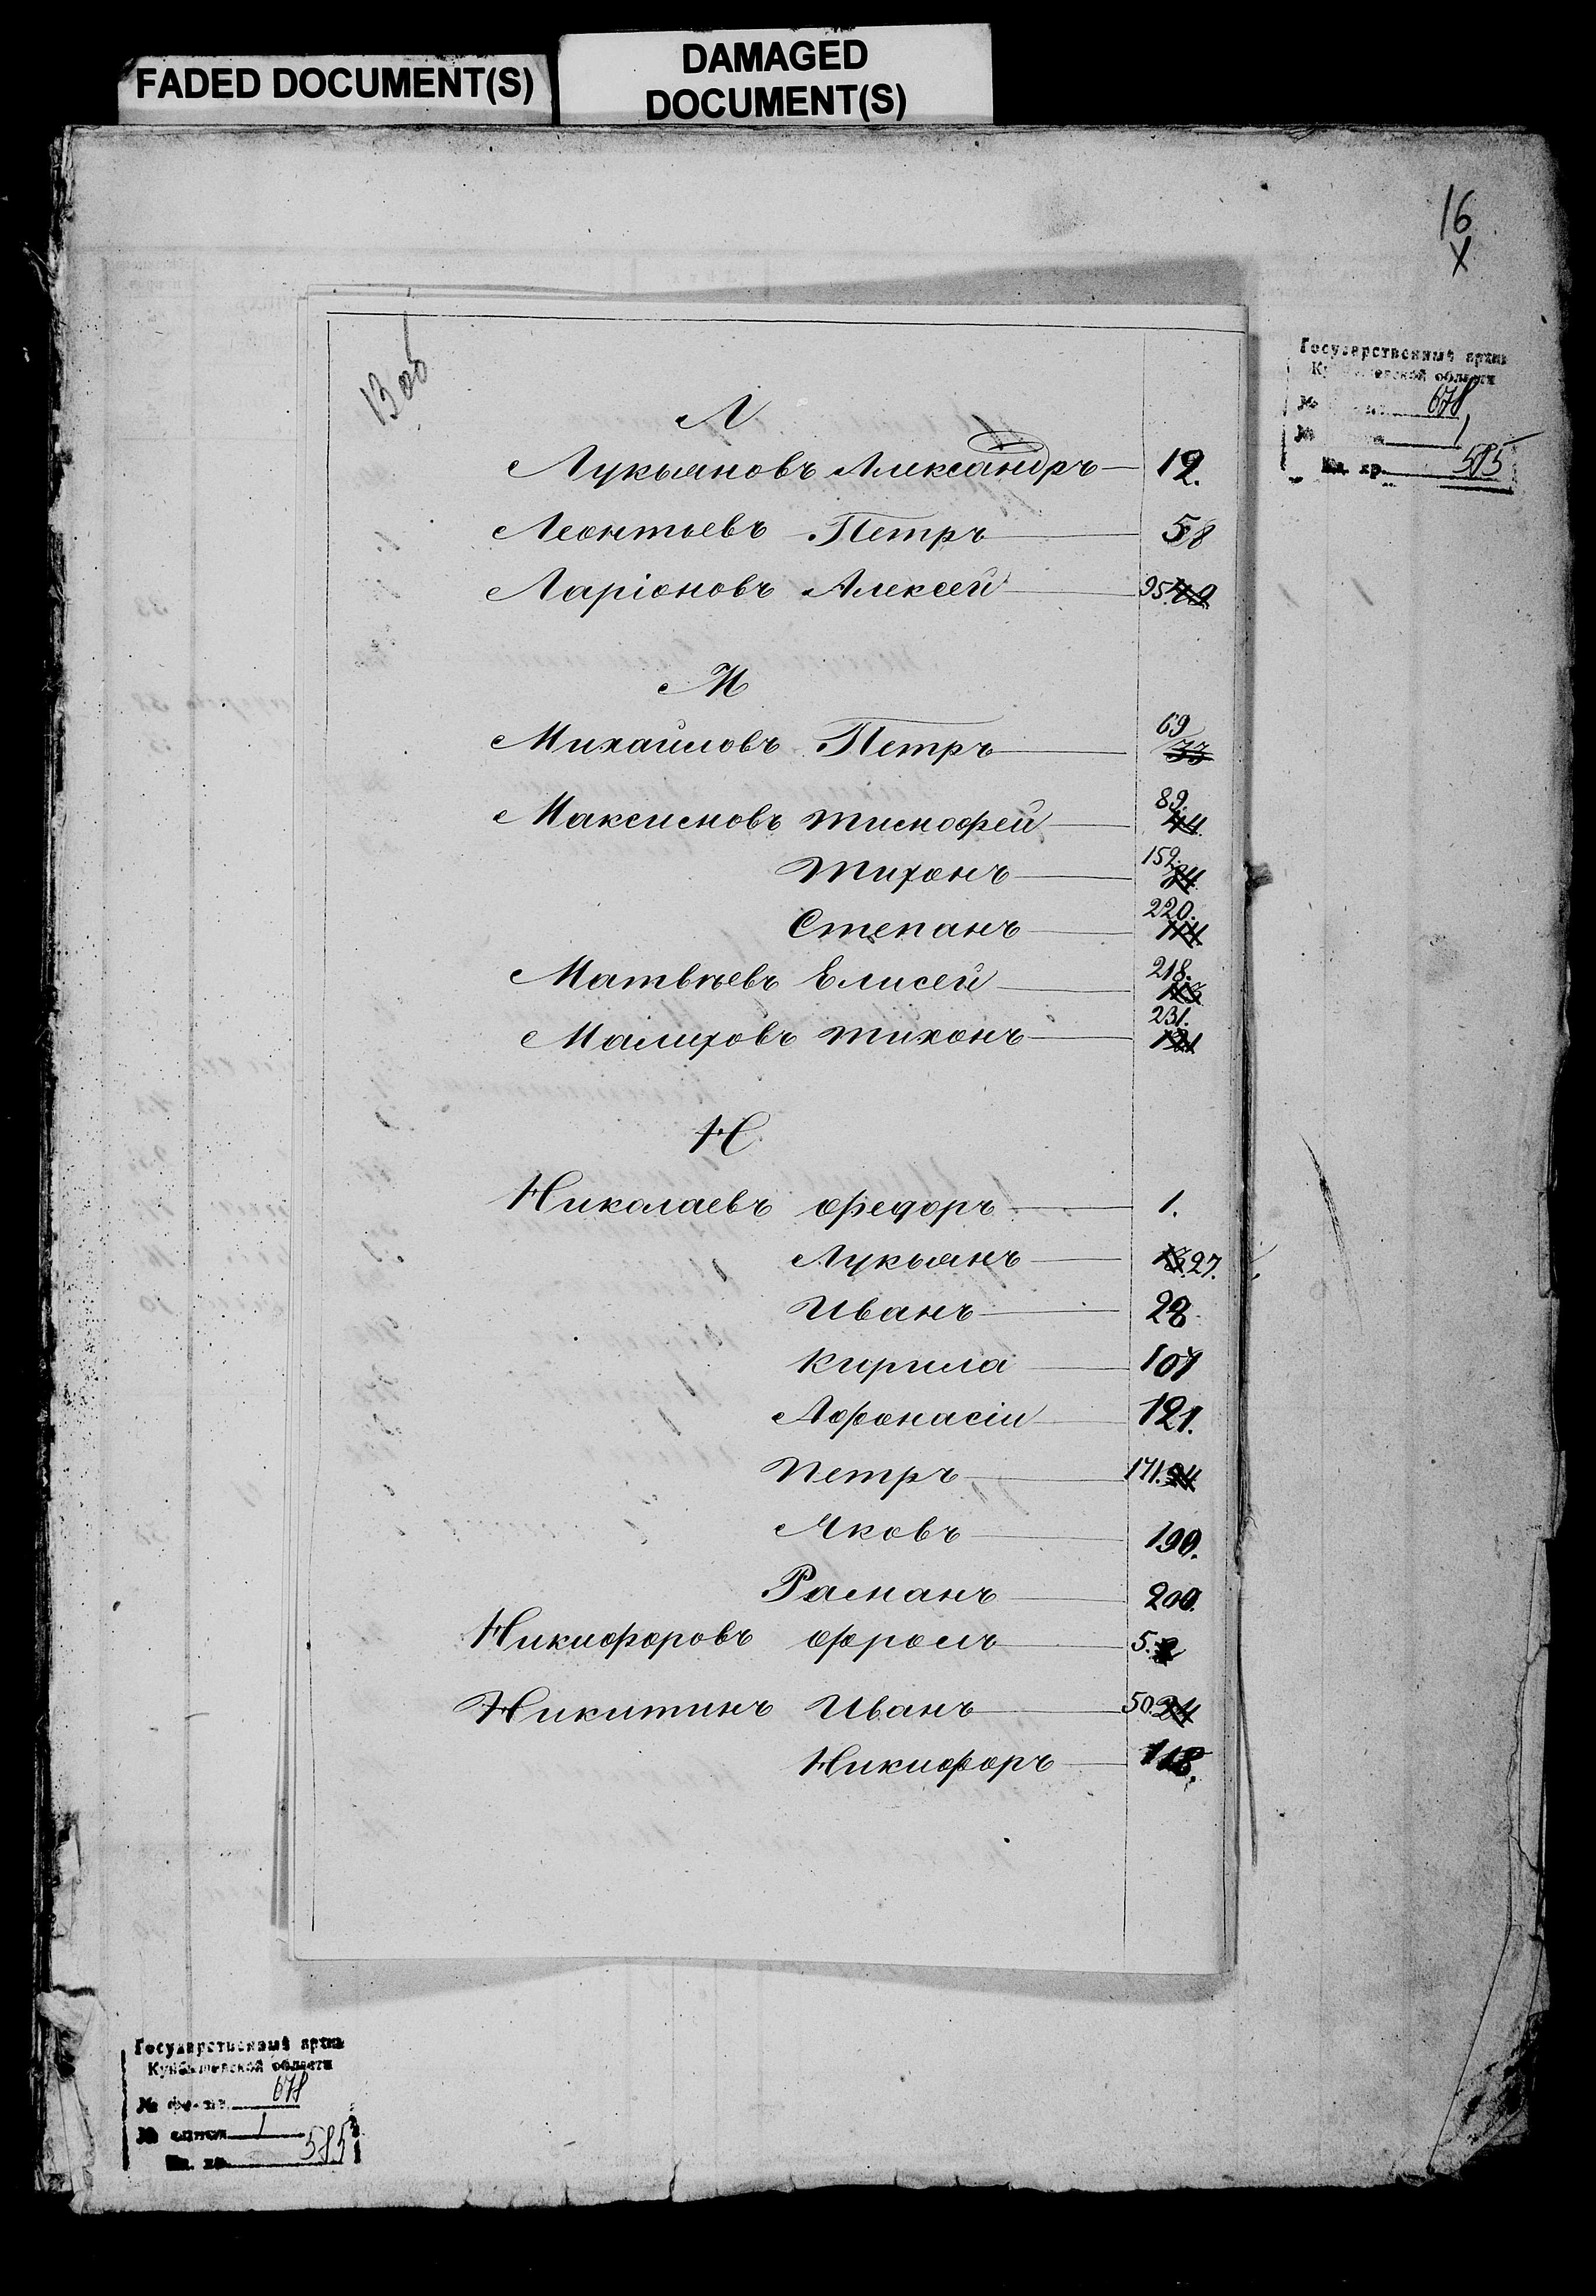 FADED DOCUMENT(S)
DAMAGED
DOCUMENT(S)
16
Х
13 об
Государственный архив
Куйбышевской области
№ 678
№ 1
Ед. хр. 585
Л
Лукьяновъ Александръ 12.
Леонтьевъ Петръ 58
Ларіоновъ Алексей 95. 49
М
Михайловъ Петръ 69 33
Максимовъ Тимофей 89. 44
Тихонъ 152. 84
Степанъ 220. 114
Матвѣевъ Елисей 218. 113
Малиховъ Тихонъ 231. 121
Н
Николаевъ Федоръ 1.
Лукьянъ 13. 27.
Иванъ 28
Кирила 107
Афонасіи 121.
Петръ 171. 94
Яковъ 190.
Раманъ 200.
Никифоровъ Фролъ 5. 2
Никитинъ Иванъ 50. 24
Никифоръ 118.
Государственный архив
Куйбышевской области
№ фонда 678
№ описи 1
Ед. хр. 585